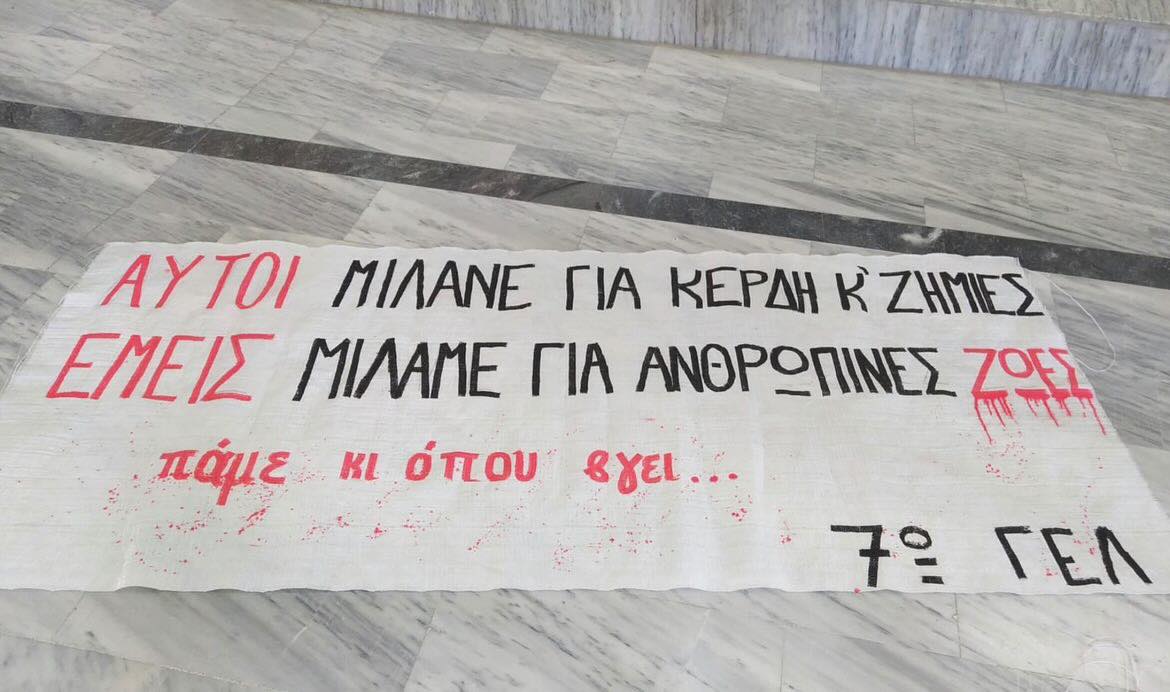 ΑΥΤΟΙ ΜΙΛΑΝΕ ΓΙΑ ΚΕΡΔΗ Κ' ΖΗΜΙΕΣ
ΕΜΕΙΣ ΜΙΛΑΜΕ ΓΙΑ ΑΝΘΡΩΠΙΝΕΣ ΖΩΕΣ
πάμε κι όπου βγει...
7ο ΓΕΛ